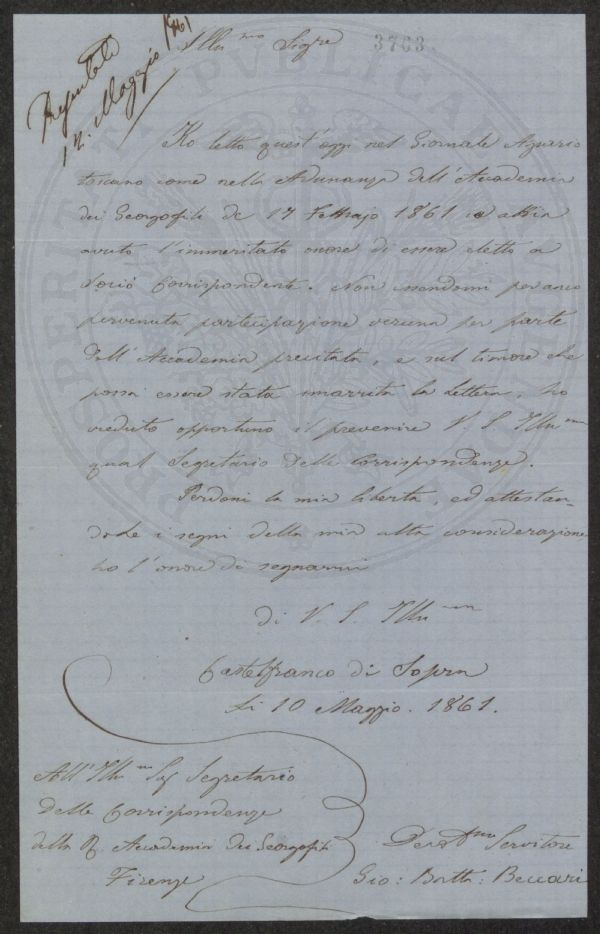 Illu mo Sigre 3763.
12. Maggio 1861
Ho letto quest'oggi nel Giornale Agrario
toscano come nella Adunanza dell'Accademia
dei Georgofili de 17 Febbrajo 1861 io abbia
avuto l'immeritato onore di essere eletto a
Socio Corrispondente. Non essendomi per anco
pervenuta partecipazione veruna per parte
dell'Accademia precitata, e sul timore che
possa essere stata smarrita la Lettera, ho
creduto opportuno il prevenire V. S. Illu ma
qual Segretario delle Corrispondenze.
Perdoni la mia libertà, ed attestan-
dole i segni della mia alta considerazione
ho l'onore di segnarmi
di V. S. Illu ma
Castelfranco di Sopra
Li 10 Maggio. 1861.
All'Illu mo Sig Segretario
delle Corrispondenze
della R. Accademia dei Georgofili
Firenze
Servitore
Gio: Batta: Beccari
PROSPERITATI PUBLICAE AUGENDAE